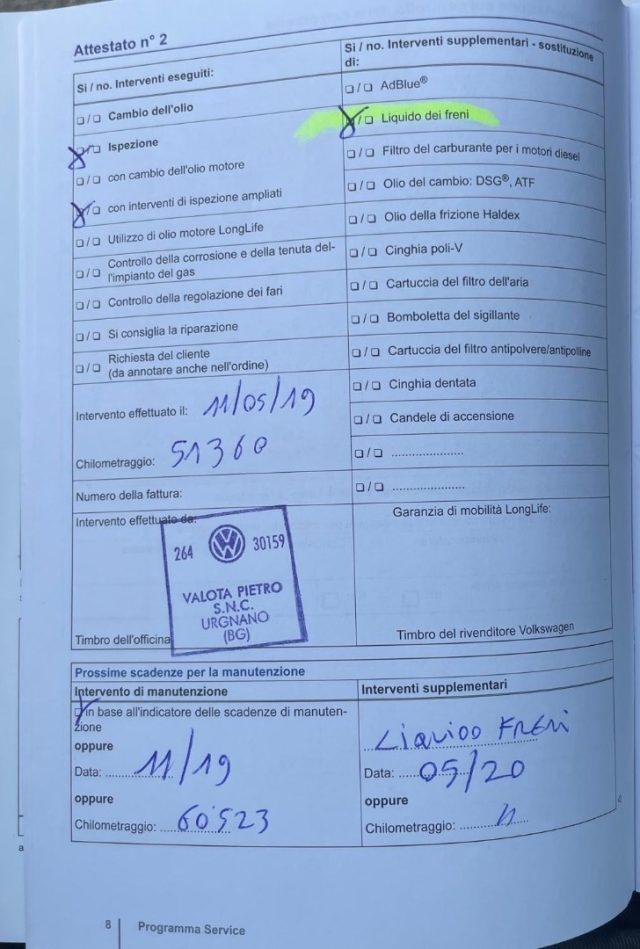 Attestato n° 2
Si / no. Interventi eseguiti:
❏ / ❏ Cambio dell'olio
❏ / ❏ Ispezione
❏ / ❏ con cambio dell'olio motore
❏ / ❏ con interventi di ispezione ampliati
❏ / ❏ Utilizzo di olio motore LongLife
❏ / ❏ Controllo della corrosione e della tenuta del-
l'impianto del gas
❏ / ❏ Controllo della regolazione dei fari
❏ / ❏ Si consiglia la riparazione
❏ / ❏ Richiesta del cliente
(da annotare anche nell'ordine)
Intervento effettuato il: 11/05/19
Chilometraggio: 51360
Numero della fattura:
Intervento effettuato da:
264 30159
VALOTA PIETRO
S.N.C.
URGNANO
(BG)
Timbro dell'officina
Si / no. Interventi supplementari - sostituzione
di:
❏ / ❏ AdBlue®
❏ / ❏ Liquido dei freni
❏ / ❏ Filtro del carburante per i motori diesel
❏ / ❏ Olio del cambio: DSG®, ATF
❏ / ❏ Olio della frizione Haldex
❏ / ❏ Cinghia poli-V
❏ / ❏ Cartuccia del filtro dell'aria
❏ / ❏ Bomboletta del sigillante
❏ / ❏ Cartuccia del filtro antipolvere/antipolline
❏ / ❏ Cinghia dentata
❏ / ❏ Candele di accensione
❏ / ❏ .....................
❏ / ❏ .....................
Garanzia di mobilità LongLife:
Timbro del rivenditore Volkswagen
Prossime scadenze per la manutenzione
Intervento di manutenzione
❏ in base all'indicatore delle scadenze di manuten-
zione
oppure
Data: 11/19
oppure
Chilometraggio: 60523
Interventi supplementari
LIQUIDO FRENI
Data: 05/20
oppure
Chilometraggio:
8 Programma Service